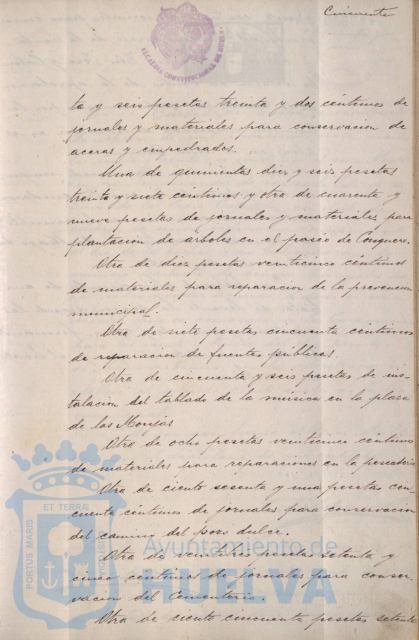 Cincuenta
ALCALDIA CONSTITUCIONAL DE HUELVA
ta y seis pesetas treinta y dos céntimos de
jornales y materiales para conservacion de
aceras y empedrados.
Una de quinientas diez y seis pesetas
treinta y siete céntimos y otra de cuarenta y
nueve pesetas de jornales y materiales para
plantacion de árboles en el paseo de Conquero.
Otra de diez pesetas veinticinco céntimos
de materiales para reparacion de la prevencion
municipal.
Otra de siete pesetas cincuenta céntimos
de reparacion de fuentes públicas.
Otra de cincuenta y seis pesetas de ins-
talacion del tablado de la música en la plaza
de las Monjas
Otra de ocho pesetas veinticinco céntimos
de materiales para reparaciones en la pescaderia
Otra de ciento sesenta y una pesetas cin-
cuenta céntimos de jornales para conservacion
del camino del pozo dulce.
Otra de veintidos pesetas setenta y
cinco céntimos de jornales para conser-
vacion del Cementerio.
Otra de ciento cincuenta pesetas setenta
PORTUS MARIS ET TERRÆ CUSTODIA
Ayuntamiento de
HUELVA